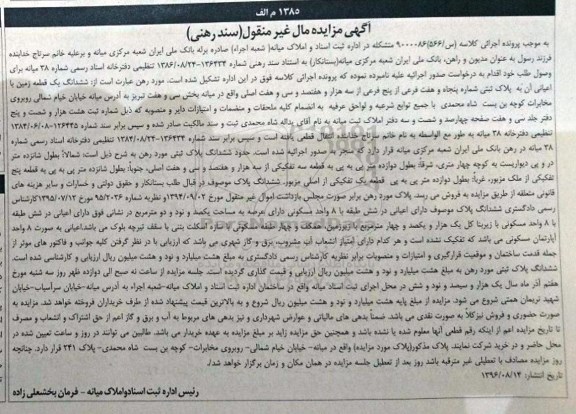 ۱۳۸۵ م الف
آگهی مزایده مال غیر منقول(سند رهنی)
به موجب پرونده اجرائی کلاسه (س/۵۶۶)۹۰۰۰۰۸۶ متشکله در اداره ثبت اسناد و املاک میانه( شعبه اجراء) صادره برله بانک ملی ایران شعبه مرکزی میانه و برعلیه خانم سرتاج خدابنده
فرزند رسول به عنوان مدیون و راهن، بانک ملی ایران شعبه مرکزی میانه(بستانکار) به استناد سند رهنی شماره ۱۳۶۴۳۴-۱۳۸۴/۰۸/۲۴ تنظیمی دفترخانه اسناد رسمی شماره ۳۸ میانه برای
وصول طلب خود اقدام به درخواست صدور اجرائیه علیه نامبرده نموده که پرونده اجرائی کلاسه فوق در این اداره تشکیل شده است. مورد رهن عبارت است از: ششدانگ یک قطعه زمین با
اعیانی آن به پلاک ثبتی شماره پنجاه و هفت فرعی از پنج فرعی از سه هزار و هفتصد و سی و هفت اصلی واقع در میانه بخش سی و هفت تبریز به آدرس میانه خیابان خیام شمالی روبروی
مخابرات کوچه بن بست شاه محمدی با جمیع توابع شرعیه و لواحق عرفیه به انضمام کلیه ملحقات و منضمات و امتیازات دایر و منصوبه که ذیل شماره ثبت هشت هزار و شصت و پنج
دفتر جلد سی و هفت صفحه چهارصد و شصت و سه دفتر املاک ثبت میانه به نام آقای یداله شاه محمدی ثبت و سند مالکیت صادر شده و سپس برابر سند شماره
تنظیمی دفترخانه ۳۸ میانه به طور مع الواسطه به نام خانم سرتاج خدابنده انتقال قطعی یافته است و سپس برابر سند شماره ۱۳۶۴۳۴-۱۳۸۴/۰۸/۲۴ تنظیمی دفترخانه اسناد رسمی شماره
۳۸ میانه در رهن بانک ملی ایران شعبه مرکزی میانه قرار دارد که منجر به صدور اجرائیه شده است. حدود ششدانگ پلاک ثبتی مورد رهن به شرح ذیل است: شمالاً: بطول شانزده متر
در و پی دیواریست به کوچه چهار متری، شرقاً: بطول دوازده متر پی به پی به قطعه سه تفکیکی از سه هزار و هفتصد و سی و هفت اصلی، جنوباً: بطول شانزده متر پی به پی به قطعه پنج
تفکیکی از ملک مزبور، غرباً: بطول دوازده متر پی به پی قطعه یک تفکیکی از اصلی مزبور. ششدانگ پلاک موصوف در قبال طلب بستانکار و حقوق دولتی و خسارات و سایر هزینه های
قانونی متعلقه از طریق مزایده به فروش می رسد. پلاک مورد رهن برابر صورت مجلس بازداشت اموال غیر منقول مورخ ۱۳۹۴/۰۹/۰۲ و نظریه شماره ۹۵/۲۰۲۶ مورخ ۱۳۹۵/۰۷/۱۲ کارشناس
رسمی دادگستری ششدانگ پلاک موصوف دارای اعیانی در شش طبقه با ۸ واحد مسکونی دارای عرصه به مساحت یکصد و نود و دو مترمربع در نشانی فوق دارای اعیانی در شش طبقه
با ۸ واحد مسکونی با زیربنا کل یک هزار و یکصد و چهار مترمربع با زیرزمین، همکف و چهار طبقه مسکونی با سازه اسکلت بتنی با سقف تیرچه بلوک می باشد.اعیانی به صورت ۸ واحد
آپارتمان مسکونی می باشد که تفکیک نشده است و هر کدام دارای امتیاز انشعاب آب مشروب، برق و گاز شهری می باشد که ارزیابی با در نظر گرفتن کلیه جوانب و فاکتور های موثر از
جمله قدمت ساختمان و موقعیت قرارگیری و امتیازات و منصوبات برابر نظریه کارشناس رسمی دادگستری به مبلغ هشت میلیارد و نود و هشت میلیون ریال ارزیابی و کارشناسی شده است.
ششدانگ پلاک ثبتی مورد رهن به مبلغ هشت میلیارد و نود و هشت میلیون ریال ارزیابی و قیمت گذاری گردیده است. جلسه مزایده از ساعت نه صبح الی دوازده ظهر روز سه شنبه مورخ
هفتم آذر ماه سال یک هزار و سیصد و نود و شش در محل اجرای ثبت اسناد میانه واقع در ساختمان اداره ثبت اسناد و املاک میانه-شعبه اجراء به آدرس میانه-خیابان سرآسیاب-خیابان
شهید نریمان همتی شروع می شود. مزایده از مبلغ پایه هشت میلیارد و نود و هشت میلیون ریال شروع و به بالاترین قیمت پیشنهاد شده از طرف خریداران فروخته خواهد شد. مزایده به
صورت حضوری و فروش نیز کلاً به صورت نقدی می باشد. ضمناً بدهی های مالیاتی و عوارض شهرداری و نیز بدهی های مربوط به آب و برق و گاز اعم از حق اشتراک و انشعاب و مصرف
تا تاریخ مزایده اعم از اینکه رقم قطعی آنها معلوم شده یا نشده باشد و همچنین حق مزایده زاید بر مبلغ مزایده به عهده خریدار می باشد. طالبین می توانند در روز و ساعت تعیین شده در
محل حاضر و در خرید شرکت نمایند. پلاک مذکور(پلاک مورد مزایده) واقع در میانه- خیابان خیام شمالی- روبروی مخابرات- کوچه بن بست شاه محمدی- پلاک ۲۴۱ قرار دارد. چنانچه
روز مزایده مصادف با تعطیلی غیر مترقبه باشد روز بعد از تعطیل جلسه مزایده در همان مکان و زمان برگزار خواهد شد/.
تاریخ انتشار: ۱۳۹۶/۰۸/۱۴
رئیس اداره ثبت اسنادواملاک میانه - فرمان بخشعلی زاده